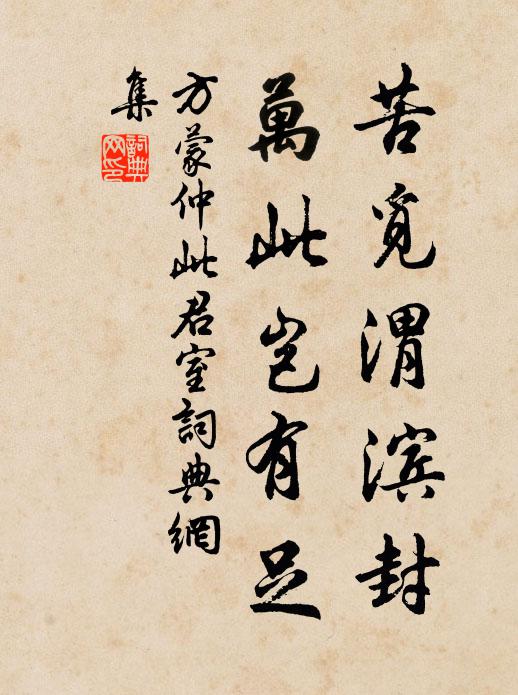 苦覓渭滨封
萬此岂有足
方蒙仲此君室詞典網
集
詞典
网印